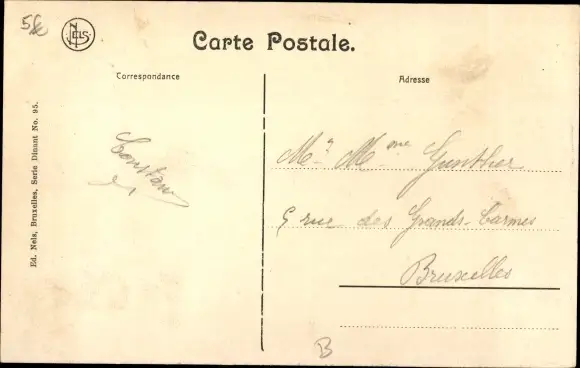 5
NELS
Carte Postale.
Correspondance
Adresse
Ed. Nels, Bruxelles, Serie Dinant No. 95.
Constant
Mr Mme Gunther
5 rue des Grands-Carmes
Bruxelles
B